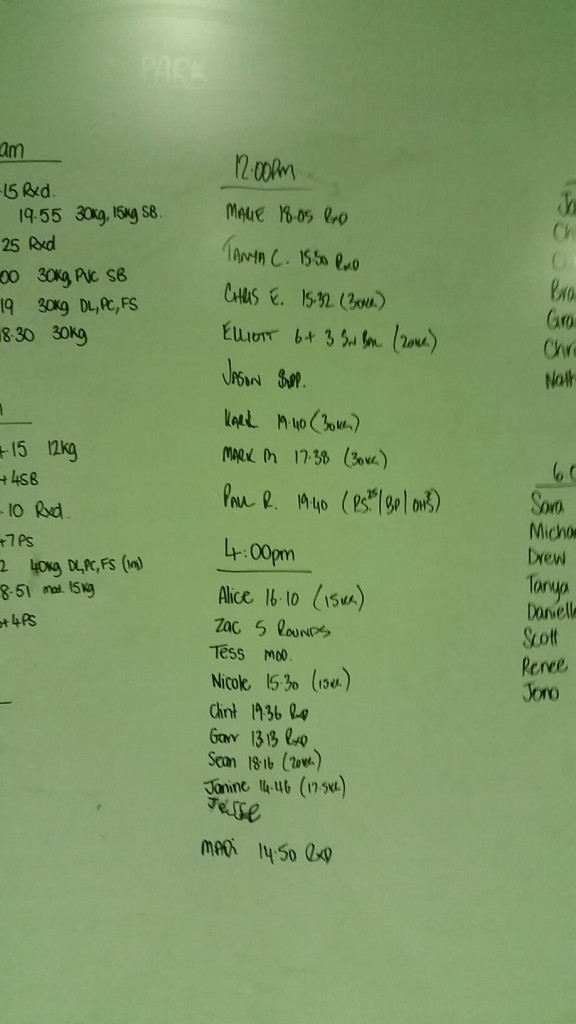 PARK
am
15 Rxd.
19.55 30kg, 15kg SB.
25 Rxd
00 30kg, PVC SB
19 30kg DL, PC, FS
8.30 30kg
+15 12kg
+4SB
10 Rxd.
+7PS
2 40kg DL, PC, FS (1m)
8.51 mod. 15kg
+4PS
12.00pm
18.05 RxD
TANYA C. 15.50 RxD
CHRIS E. 15.32 (30KG)
ELLIOTT 6 + 3 (20KG)
JASON
KARL 19.40 (30KG)
MARK M 17.38 (30KG)
PAUL R. 19.40
4:00pm
Alice 16.10 (15KG)
Zac 5 ROUNDS
Tess MOD.
Nicole 15.30 (15KG)
Clint 19.36 RxD
13.13 RxD
Sean 18.16 (20KG)
Janine 14.46 (17.5KG)
Jesse
MADi 14.50 RxD
Ja
Ch
Bra
Gra
Chri
Nath
6
Sara
Micha
Drew
Tanya
Danielle
Scott
Renee
Jono